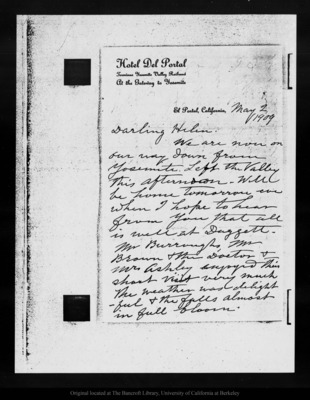 Hotel Del Portal
Terminus Yosemite Valley Railroad
At the Gateway to Yosemite
El Portal, California, May 2
1909
Darling Helen.
We are now on
our way down from
Yosemite. Left the Valley
this afternoon - Will
be home tomorrow eve
when I hope to hear
from you that all
is well at Daggett -
Mr Burroughs, Mr
Brown & the Doctor &
Mrs Ashley enjoyed this
short visit very much
The weather was delight
-ful & the falls almost
in full bloom.
Original located at The Bancroft Library, University of California at Berkeley